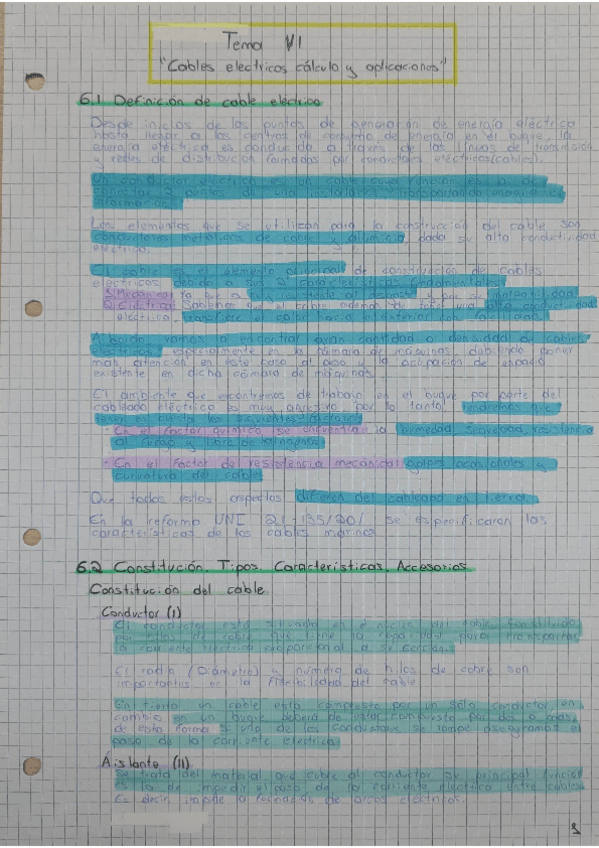 Tema VI
"Cables electricos cálculo y aplicaciones"
6.1 Definición de cable eléctrico
Desde inicios de los puntos de generación de energía eléctrica
hasta llegar a los centros de consumo de energía en el buque, la
energía eléctrica es conducida a través de las líneas de transmisión
y redes de distribución formadas por conductores eléctricos(cables).
Un conductor eléctrico es un cable cuya función es la de
conectar 2 puntos de una instalación transportando energía o
información.
Los elementos que se utilizan para la construcción del cable son
conductores metálicos de cobre y aluminio, dada su alta conductividad
eléctrica.
El cobre es el elemento principal de construcción de cables
eléctricos, debido a sus 2 características fundamentales
1) Mecánica: Ya que a y por su maleabilidad
2) Eléctrica: Sabemos que el cobre además de tener una alta conductividad
eléctrica,
A bordo vamos a encontrar gran cantidad o densidad de cables
eléctricos, especialmente en la cámara de máquinas, debiendo poner
más atención en este caso al peso y la ocupación de espacio
existente en dicha cámara de máquinas.
El ambiente que encontremos de trabajo en el buque por parte del
cableado eléctrico es muy agresivo por lo tanto tendremos que
tener en cuenta los siguientes factores
· En el factor químico se encuentran la humedad, suavidad, resistencia
al fuego y libre de halógenos
· En el factor de resistencia mecánica: golpes ocasionales y
curvatura del cable
Que todos estos aspectos difieren del cableado en tierra.
En la reforma UNE 21-135/201 se especificaran las
características de los cables marinos
6.2 Constitución. Tipos. Características. Accesorios
Constitución del cable.
Conductor (I)
El conductor está situado en el núcleo del cable. Constituido
por hilos de cobre que tiene la capacidad para transportar
la corriente eléctrica proporcional a su sección.
El radio (Diámetro) y número de hilos de cobre son
importantes en la flexibilidad del cable
En tierra un cable está compuesto por un sólo conductor en
cambio en un buque deberá de estar compuesto por dos o más,
de esta forma si uno de los conductores se rompe aseguramos el
paso de la corriente eléctrica.
Aislante (II)
Se trata del material que cubre al conductor su principal función
es la de impedir el paso de la corriente eléctrica entre cables
Es decir, impide la formación de arcos eléctricos.
1